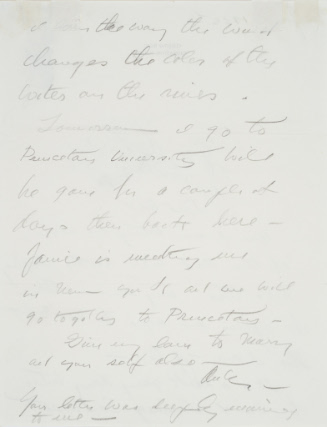 the way the wind
changes the color of the
water on the river.
Tomorrow I go to
Princeton University will
be gone for a couple of
days then back here –
is meeting me
in New York and we will
go together to Princeton –
Give my love to Mary
and your self also –
Your letter was
to me –